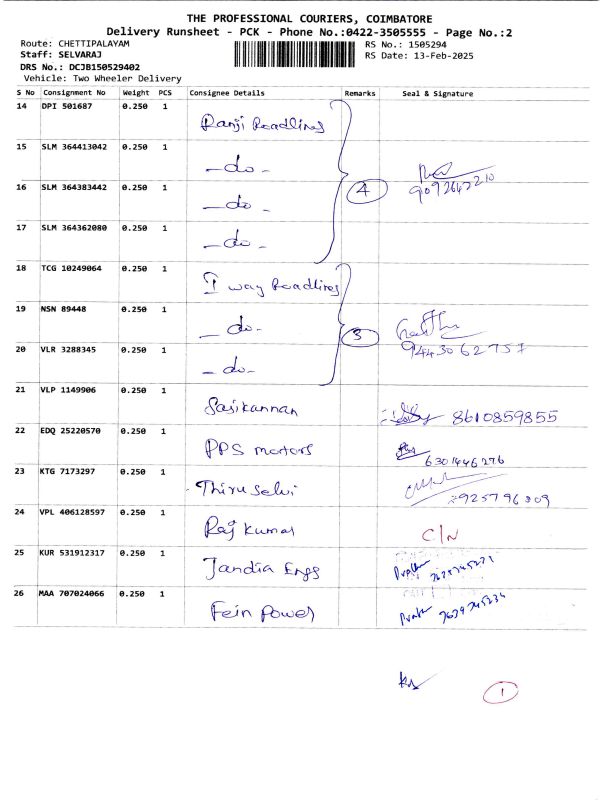 THE PROFESSIONAL COURIERS, COIMBATORE
Delivery Runsheet - PCK - Phone No.:0422-3505555 - Page No.:2
Route: CHETTIPALAYAM RS No.: 1505294
Staff: SELVARAJ RS Date: 13-Feb-2025
DRS No.: DCJB150529402
Vehicle: Two Wheeler Delivery
S No Consignment No Weight PCS Consignee Details Remarks Seal & Signature
14 DPI 501687 0.250 1 Ranji Roadlines
15 SLM 364413042 0.250 1 - do -
16 SLM 364383442 0.250 1 - do - 4 9092642210
17 SLM 364362080 0.250 1 - do -
18 TCG 10249064 0.250 1 I way Roadlines
19 NSN 89448 0.250 1 - do - 3
20 VLR 3288345 0.250 1 - do - 9443062757
21 VLP 1149906 0.250 1 Sasikannan 8610859855
22 EDQ 25220570 0.250 1 PPS motors 6301446276
23 KTG 7173297 0.250 1 Thiru Selvi
24 VPL 406128597 0.250 1 Raj Kumar C/N
25 KUR 531912317 0.250 1 Jandia Engg
26 MAA 707024066 0.250 1 Fein Power
1